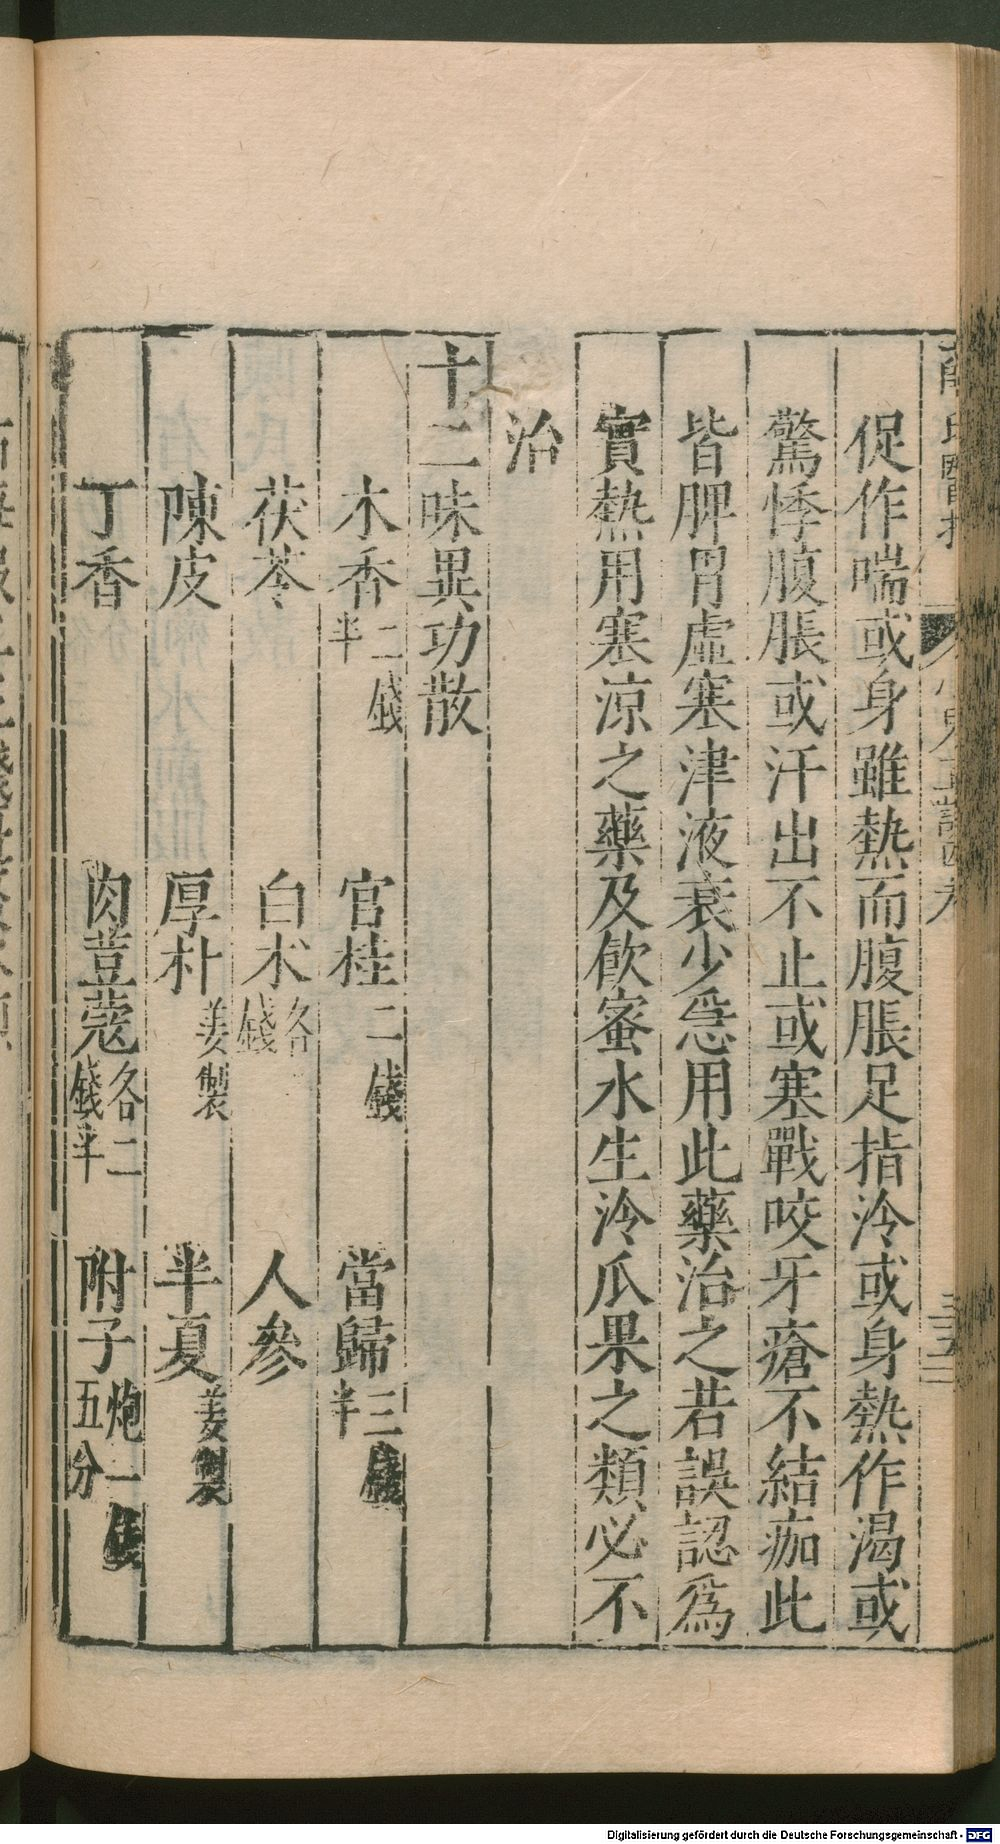 促作喘或身雖熱而腹脹足指冷或身熱作渴或
驚悸腹脹或汗出不止或寒戰咬牙瘡不結痂此
皆脾胃虛寒津液衰少急用此藥治之若誤認為
實熱用寒涼之藥及飲蜜水生冷瓜果之類必不
治
十二味異功散
木香二錢半 官桂二錢 當歸三錢半
茯苓 白朮各錢 人參
陳皮 厚朴姜製 半夏姜製
丁香 肉荳蔻各二錢半 附子炮一錢五分
Digitalisierung gefördert durch die Deutsche Forschungsgemeinschaft - DFG